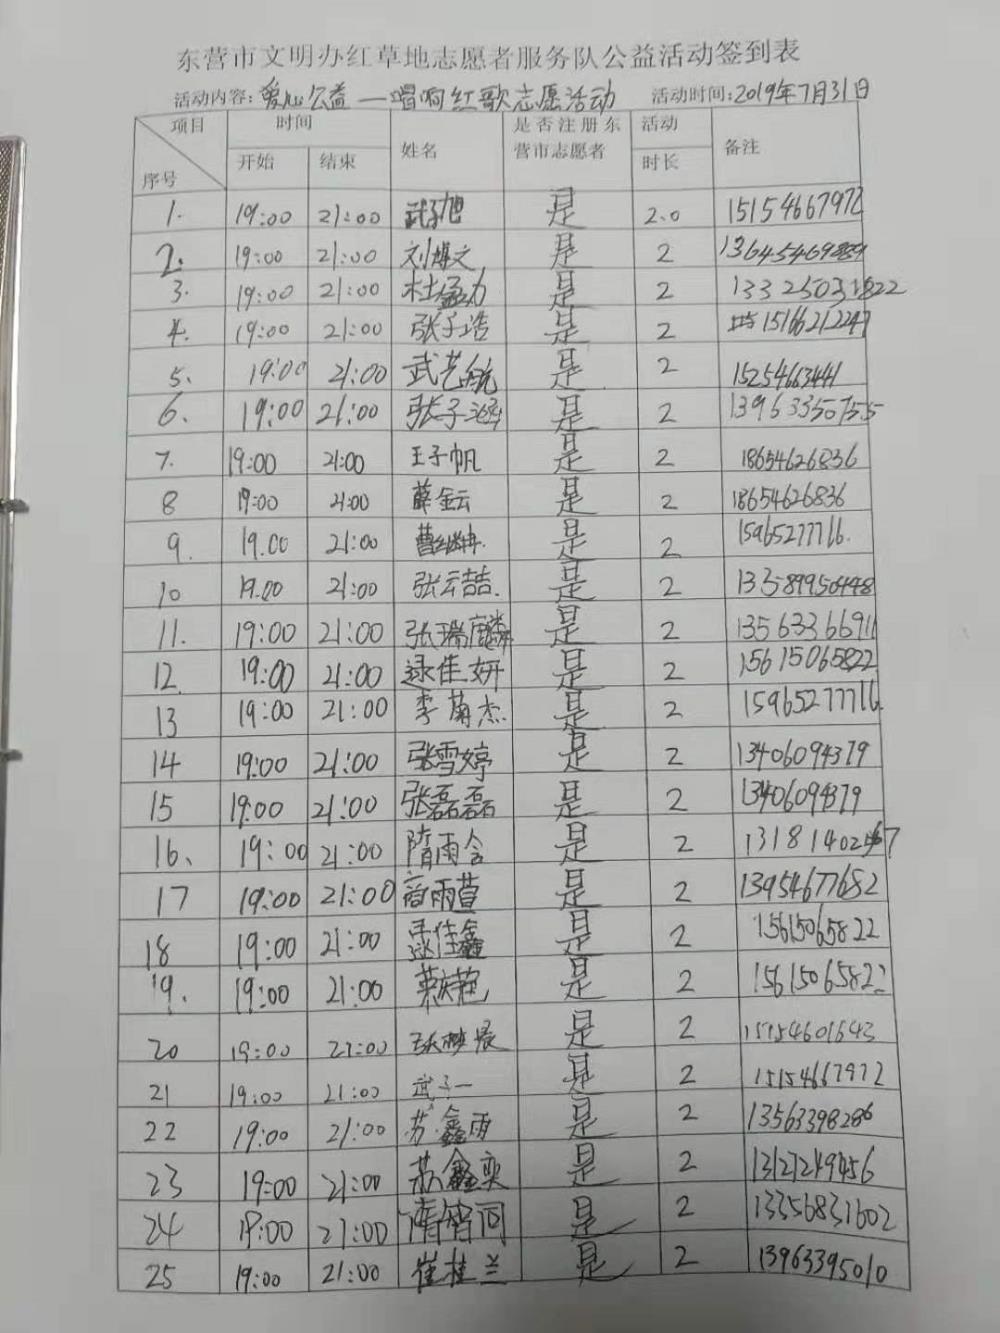 东营市文明办红草地志愿者服务队公益活动签到表
活动内容:爱心公益—唱响红歌志愿活动 活动时间:2019年7月31日
项目 时间 姓名 是否注册东营市志愿者 活动时长 备注
序号 开始 结束
1. 19:00 21:00 武子旭 是 2.0 15154667972
2. 19:00 21:00 刘博文 是 2
3. 19:00 21:00 杜孟力 是 2 13325031822
4. 19:00 21:00 张子浩 是 2 15166212247
5. 19:00 21:00 武艺航 是 2 15254663441
6. 19:00 21:00 张子 是 2 13963350755
7. 19:00 21:00 王子帆 是 2 18654626836
8 19:00 21:00 薛金云 是 2 18654626836
9. 19.00 21:00 是 2 15965277716.
10 19.00 21:00 张云喆. 是 2 13589950448
11. 19:00 21:00 张瑞麟 是 2 13563366911
12. 19:00 21:00 逯佳妍 是 2 15615065822
13 19:00 21:00 李菊杰 是 2 15965277716.
14 19:00 21:00 张雪婷 是 2 13406094379
15 19:00 21:00 张磊磊 是 2 13406094379
16、 19:00 21:00 隋雨含 是 2
17 19:00 21:00 商雨萱 是 2 13954677682
18 19:00 21:00 逯佳鑫 是 2 15615065822
19. 19:00 21:00 是 2 15615065822
20 19:00 21:00 张梦宸 是 2 15154601643
21 19:00 21:00 武子一 是 2 15154667972
22 19:00 21:00 苏鑫雨 是 2 13563398286
23 19:00 21:00 苏鑫奕 是 2 13127249456
24 19:00 21:00 隋智同 是 2 13356831602
25 19:00 21:00 崔桂兰 是 2 13963395010